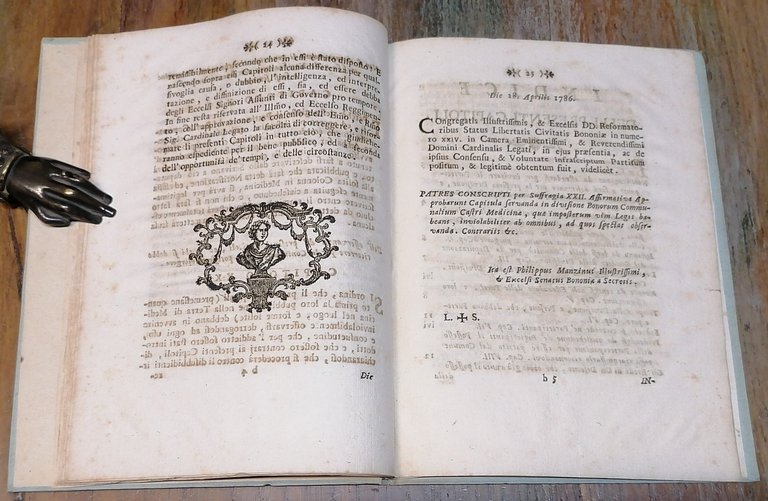 24
remissibilmente, secondo che in essi è stato disposto: E
nascendo sopra essi Capitoli alcuna differenza per qual-
sivoglia causa, o dubbio, l'intelligenza, ed interpre-
tazione, e diffinizione di essi, sia, ed essere debba
degli Eccelsi Signori Assunti di Governo pro tempore.
In fine resta riservata all'Illmo, ed Eccelso Reggimen-
to, coll'approvazione, e consenso dell'Emo, e Rmo
Sig. Cardinale Legato la facoltà di correggere, e rifor-
mare li presenti Capitoli in tutto ciò, che giudiche-
ranno espediente per il bene pubblico, ed a seconda
dell'opportunità de' tempi, e delle circostanze.
b 4
Die
25
Die 28. Aprilis 1786.
COngregatis Illustrissimis, & Excelsis DD. Reformato-
ribus Status Libertatis Civitatis Bononiæ in nume-
ro XXIV. in Camera Eminentissimi, & Reverendissimi
Domini Cardinalis Legati, in ejus præsentia, ac de
ipsius Consensu, & Voluntate infrascriptum Partitum
positum, & legitimè obtentum fuit, videlicet.
PATRES CONSCRIPTI per Suffragia XXII. Affirmativa Ap-
probarunt Capitula servanda in divisione Bonorum Commu-
nalium Castri Medicinæ, quæ imposterum vim Legis ha-
beant, inviolabiliter ab omnibus, ad quos spectas obser-
vanda. Contrariis &c.
Ita est Philippus Manzinus Illustrissimi,
& Excelsi Senatus Bononiæ a Secretis.
L. ✠ S.
b 5
IN-